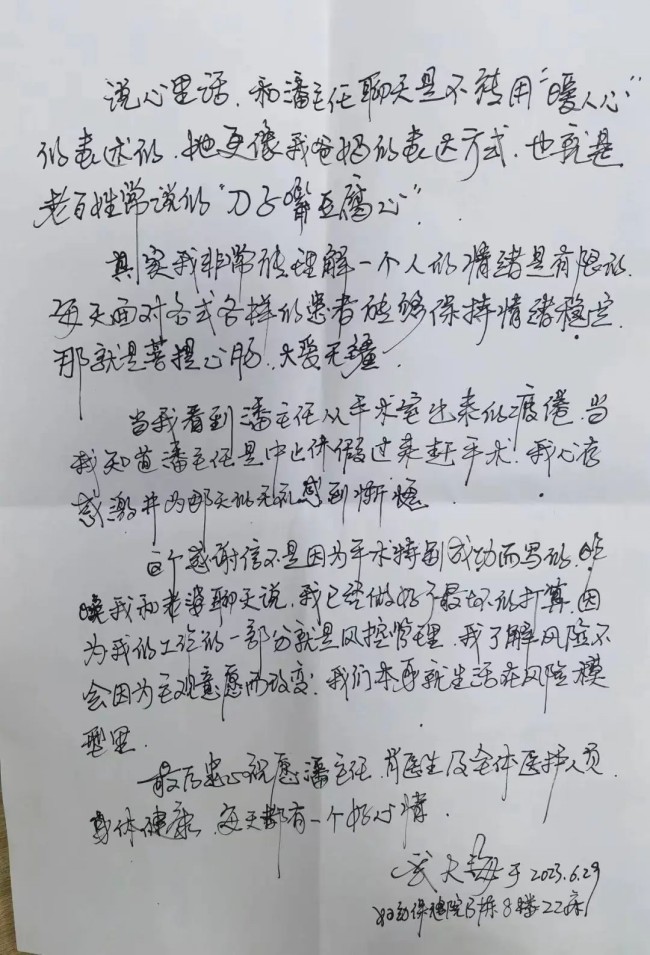 说心里话，和潘主任聊天是不能用“暖人心”
的表述的，她更像我爸妈的表达方式，也就是
老百姓常说的“刀子嘴豆腐心”。
其实我非常能理解一个人的情绪是有限的，
每天面对各式各样的患者能够保持情绪稳定，
那就是菩提心肠，大爱无疆。
当我看到潘主任从手术室出来的疲倦，当
我知道潘主任是中止休假过来赶手术，我心存
感激并为那天的无礼感到惭愧。
这个感谢信不是因为手术特别成功而写的，昨
晚我和老婆聊天说，我已经做好了最坏的打算，因
为我的工作的一部分就是风控管理，我了解风险不
会因为主观意愿而改变，我们本身就生活在风险模
型里。
最后衷心祝愿潘主任、肖医生及全体医护人员，
身体健康，每天都有一个好心情。
于2023.6.29
妇幼保健院B栋8楼22床